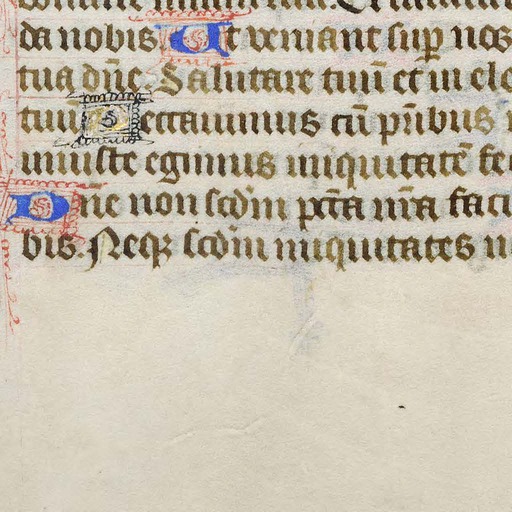 da nobis. Et veniant sup nos
tua dn̄e. Salutare tuū et in elo
tuū. Peccauimus cū pr̄ibus
iniuste egimus iniquitatē fec
Dn̄e non scdm pctā nr̄a faci
bis. Neqꝫ scdm iniquitates n